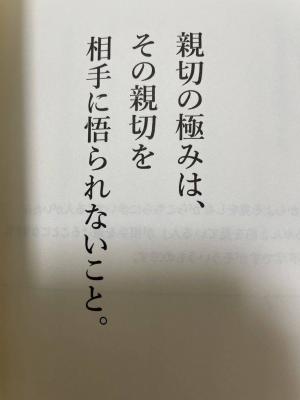 親切の極みは、
その親切を
相手に悟られないこと。